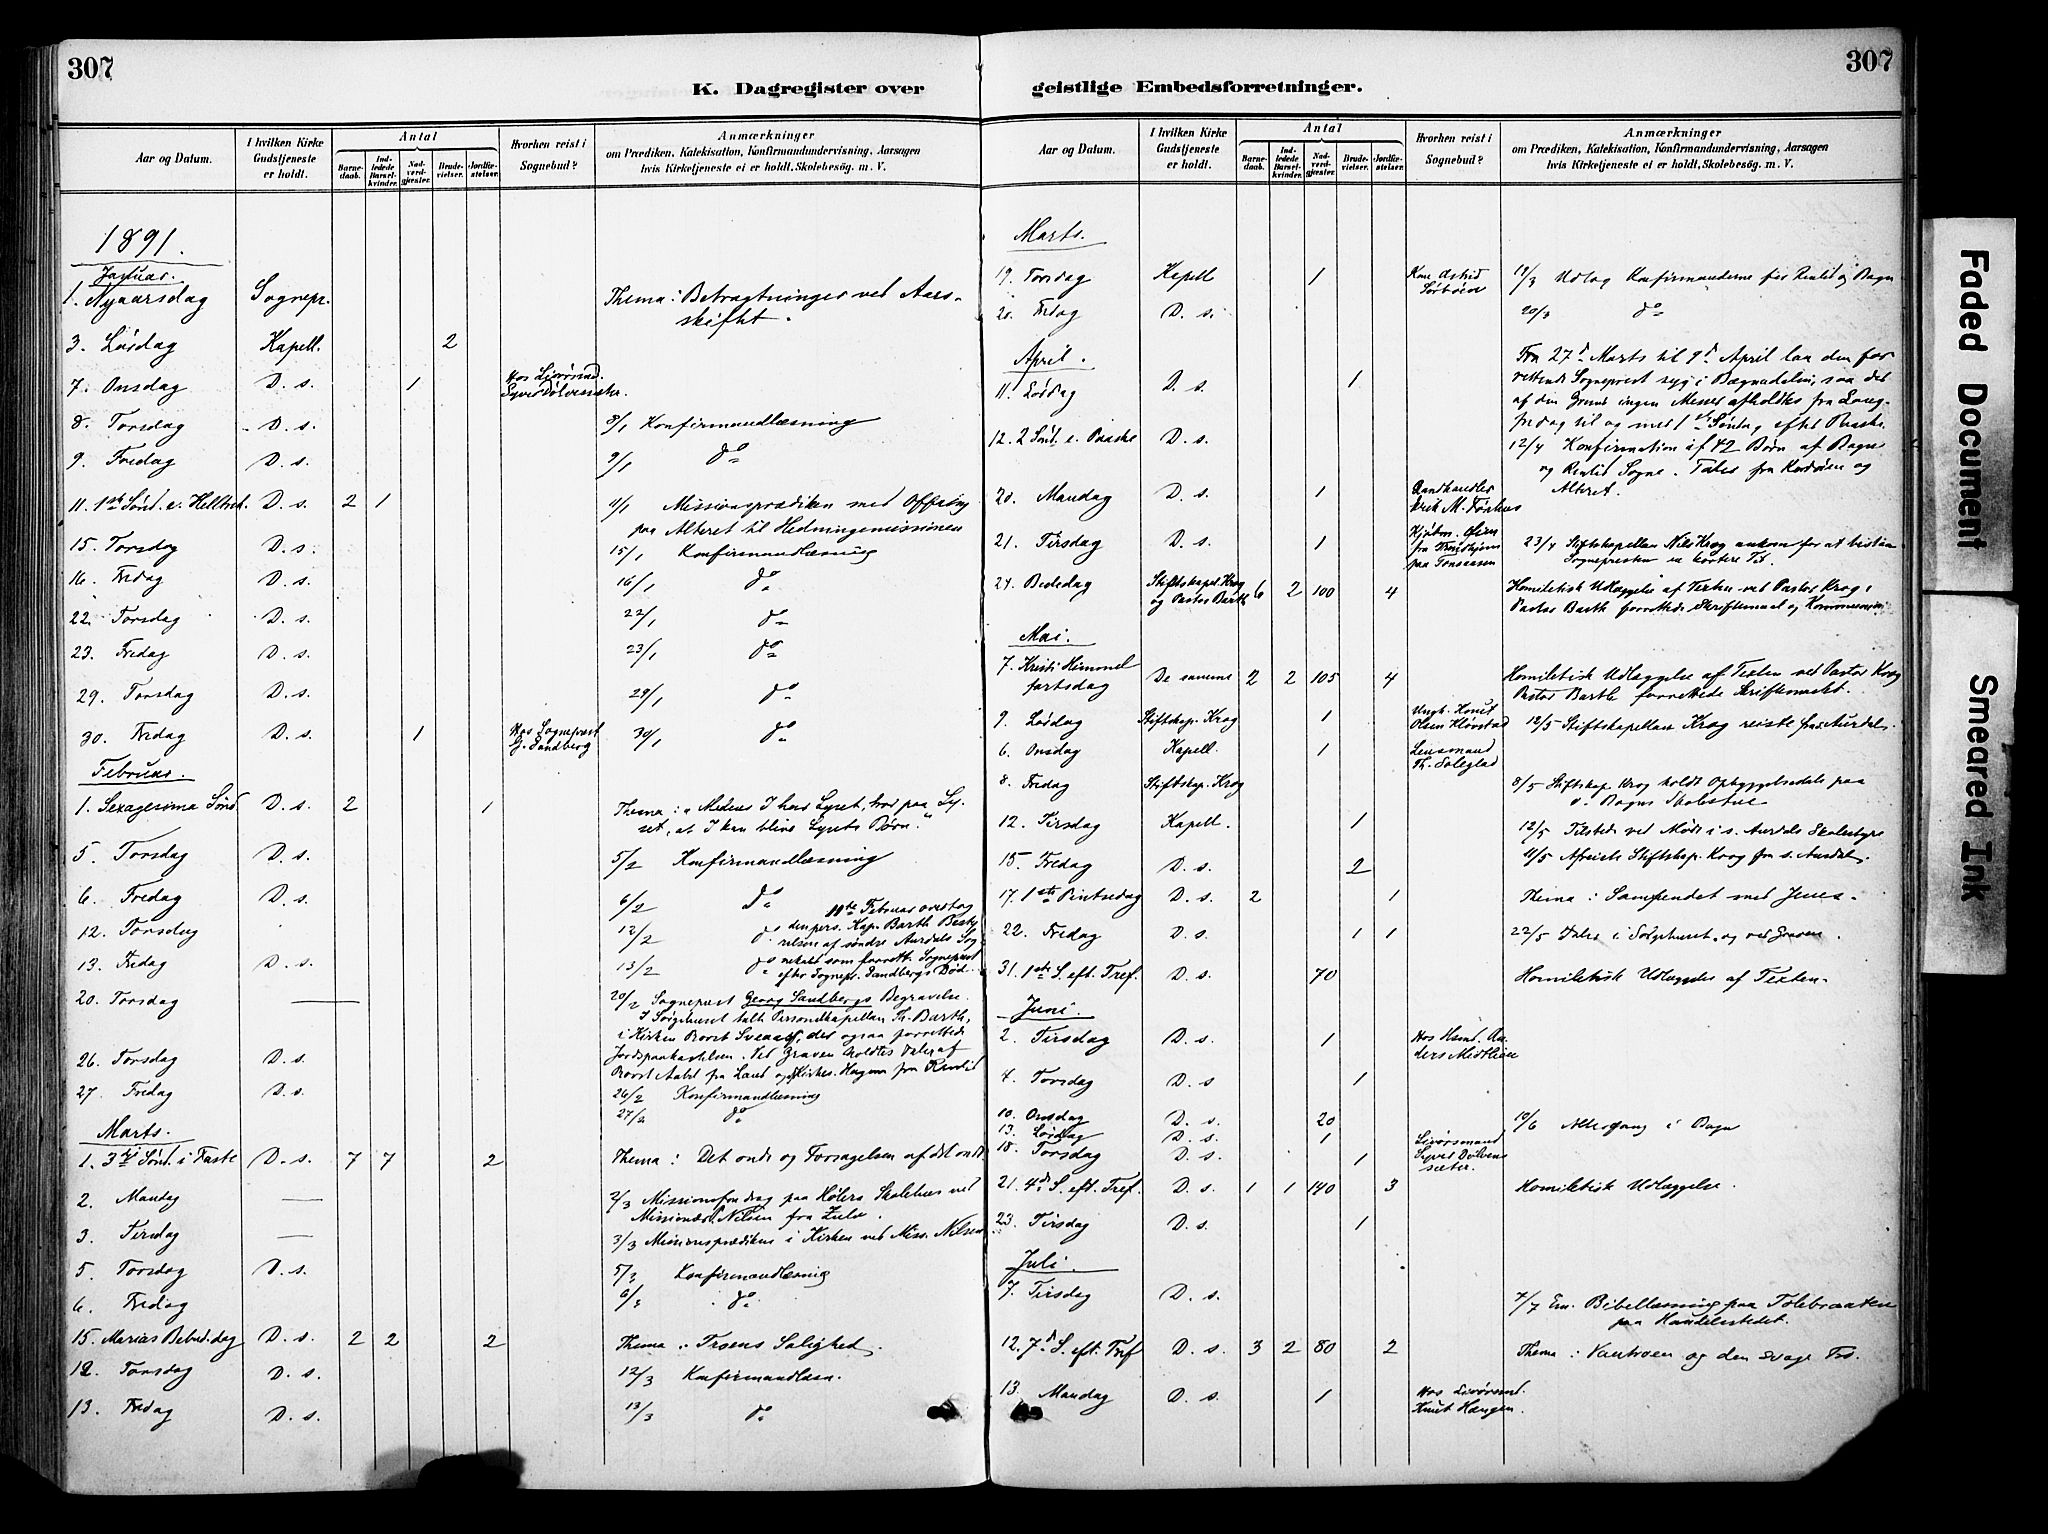 307
K. Dagregister over
Aar og Datum.
I hvilken Kirke Gudstjeneste er holdt.
Antal
Barnedaab.
Indledede Barselkvinder.
Nadverdgjester.
Brudevielser.
Jordfæstelser.
Hvorhen reist i Sognebud?
Anmærkninger
om Prædiken, Katekisation, Konfirmandundervisning, Aarsagen
hvis Kirketjeneste ei er holdt, Skolebesög. m. V.
1891.
Januar.
1. Nyaarsdag Sognepr. Thema: Betragtninger ved Aars-
skiftet.
3. Lørdag Kapell. 2
7. Onsdag D. s. 1 Hos
8. Torsdag D. s. 8/1 Konfirmandlæsning
9. Fredag D. s. 9/1 do
11. 1ste Sønd. e. D. s. 2 1 11/1 Missionsprædiken med Offring
paa Alteret til Hedningemissionen
15. Torsdag D. s. 15/1 Konfirmandlæsning
16. Fredag D. s. 16/1 do
22. Torsdag D. s. 22/1 do
23. Fredag D. s. 23/1 do
29. Torsdag D. s. 29/1 do
30. Fredag D. s. 1 Hos Sogneprest
G. Sandberg 30/1 do
Februar.
1. Sexagesima Sønd. D. s. 2 1 Thema: "Medens I have Lyset, tror paa Ly-
set, at I kan blive Lysets Børn."
5. Torsdag D. s. 5/2 Konfirmandlæsning
6. Fredag D. s. 6/2 do
12. Torsdag 12/2 do
13. Fredag D. s. 13/2 do
11te Februar overtog
den pers. Kap. Barth Besty-
relsen af søndre Aurdals Sog-
nekald som forrett. Sogneprest
efter Sognepr. Sandbergs Død.
20. Torsdag — 20/2 Sogneprest Georg Sandbergs Begravelse.
I Sørgehuset talte Personelkapellan Th. Barth,
i Kirken Provst der ogsaa forrettede
Jordspaakastelsen. Ved Graven holdtes Taler af
Provst fra Land og
26. Torsdag D. s.
27. Fredag D. s.
26/2 Konfirmandlæsning
27/2 do
Marts.
1. 3die Sønd. i Faste D. s. 7 7 2 Thema: Det onde og Forsagelsen af det onde
2. Mandag — 2/3 Missionsforedrag paa Skolehus ved
Missionær Nilsen fra Zulu.
3. Tirsdag — 3/3 Missionsprædiken i Kirken ved Miss. Nilsen
5. Torsdag D. s. 5/3 Konfirmandlæsning
6. Fredag 6/3 do
15. Marias Bebud.dag D. s. 2 2 2 Thema: Troens Salighed.
12. Torsdag D. s. 12/3 Konfirmandlæsn.
13. Fredag D. s. 13/3 do
307
geistlige Embedsforretninger.
Aar og Datum.
I hvilken Kirke Gudstjeneste er holdt.
Antal
Barnedaab.
Indledede Barselkvinder.
Nadverdgjester.
Brudevielser.
Jordfæstelser.
Hvorhen reist i Sognebud?
Anmærkninger
om Prædiken, Katekisation, Konfirmandundervisning, Aarsagen
hvis Kirketjeneste ei er holdt, Skolebesög. m. V.
Marts.
19. Torsdag Kapell 1 Kone Astrid
Sørbøen 19/3 Udlag Konfirmanderne for Reinlid og Bagn
20. Fredag D. s. 20/3 do
April.
Fra 27de Marts til 9de April laa den for-
rettende Sogneprest syg i Bægnadalen, saa det
af den Grund ingen Messer afholdtes fra Lang-
fredag til og med 1ste Søndag efter Paaske.
11. Lørdag D. s. 1
12. 2 Sønd. e. Paaske D. s. 12/4 Konfirmation af 42 Børn af Bagn
og Reinlid Sogne. Tales fra Kordøren og
Alteret.
20. Mandag D. s. 1 Landhandler
Erik M.
21. Tirsdag D. s. 1 Kjøbm.
fra Trondhjem
paa Tonsaasen 23/4 Stiftskapellan Nils Krog ankom for at bistaa
Sognepresten en kortere Tid.
24. Bededag Stiftskapel. Krog
og Pastor Barth 6 2 100 4 Homiletisk Udlæggelse af Texten ved Pastor Krog.
Pastor Barth forrettede Skriftemaal og Kommunion.
Mai.
7. Kristi Himmel-
fartsdag De samme 2 2 105 4 Homiletisk Udlæggelse af Texten ved Pastor Krog
Pastor Barth forrettede Skriftemaalet.
9. Lørdag Stiftskap. Krog 1 Ungk. Knut
Olsen 12/5 Stiftskapellan Krog reiste fra s. Aurdal.
6. Onsdag Kapell. 1 Lensmand
Th. Soleglad
8. Fredag Stiftskap. Krog 8/5 Stiftskap Krog holdt Opbyggelsestale paa
Bagns Skolestue
12. Tirsdag Kapell. 1 12/5 Tilstede ved Møde i s. Aurdals Skolestyre
15. Fredag D. s. 2 11/5 Afreiste Stiftskap. Krog fra s. Aurdal.
17. 1ste Pintsedag D. s. 2 1 Thema: Samfundet med Jesus.
22. Fredag D. s. 1 1 22/5 Tale i Sørgehuset og ved Graven.
31. 1ste S. eft. Tref. D. s. 70 Homiletisk Udlæggelse af Texten.
Juni.
2. Tirsdag D. s. 1 Hos Hsmd. An-
ders Midtlien
4. Torsdag D. s 1
10. Onsdag D. s. 20 10/6 Altergang i Bagn
13. Lørdag D. s. 1
18. Torsdag D. s. 1
21. 4de S. eft. Tref. D. s. 1 1 140 3 Homiletisk Udlæggelse.
23. Tirsdag D. s. 1
Juli.
7. Tirsdag D. s. 7/7 Em. Bibellæsning paa
paa Handelsstedet.
12. 7de S. eft. Tref D. s. 3 2 80 2 Thema: Vantroen og den svage Tro.
13. Mandag D. s. 1 Hos
Knut Haugen.
Faded Document
Smeared Ink